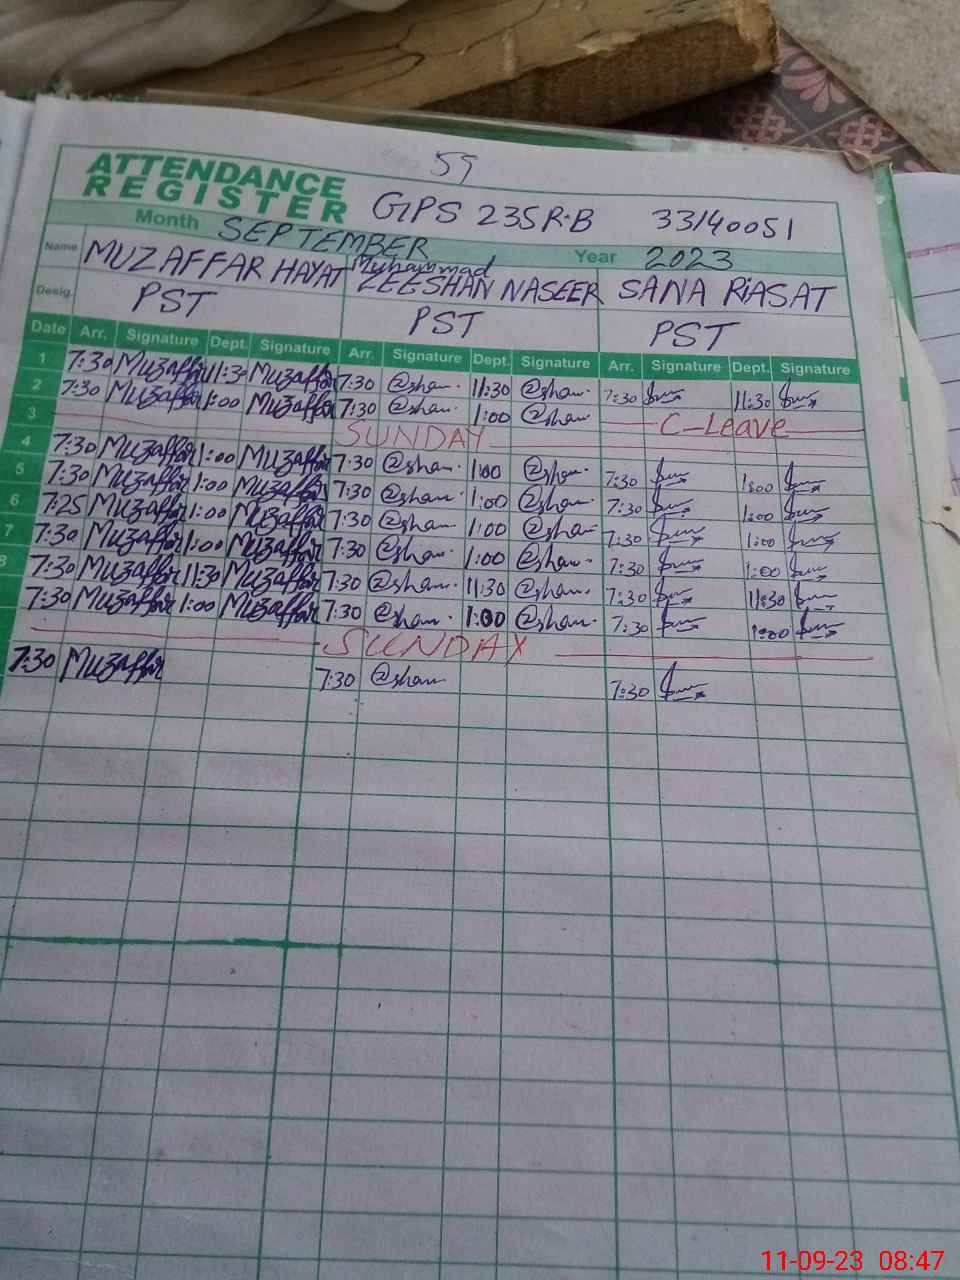 59
ATTENDANCE
REGISTER GPS 235R-B 33140051
Month SEPTEMBER Year 2023
Name MUZAFFAR HAYAT Muhammad ZEESHAN NASEER SANA RiASAT
Desig. PST PST PST
Date Arr. Signature Dept. Signature Arr. Signature Dept. Signature Arr. Signature Dept. Signature
1 7:30 Muzaffar 11:30 Muzaffar 7:30 @shan. 11:30 @shan. 7:30 11:30
2 7:30 Muzaffar 1:00 Muzaffar 7:30 @shan. 1:00 @shan. C-Leave
3 SUNDAY
4 7:30 Muzaffar 1:00 Muzaffar 7:30 @shan. 1:00 @shan. 7:30 1:00
5 7:30 Muzaffar 1:00 Muzaffar 7:30 @shan. 1:00 @shan. 7:30 1:00
6 7:25 Muzaffar 1:00 Muzaffar 7:30 @shan. 1:00 @shan 7:30 1:00
7 7:30 Muzaffar 1:00 Muzaffar 7:30 @shan. 1:00 @shan. 7:30 1:00
8 7:30 Muzaffar 11:30 Muzaffar 7:30 @shan. 11:30 @shan. 7:30 11:30
7:30 Muzaffar 1:00 Muzaffar 7:30 @shan. 1:00 @shan. 7:30 1:00
SUNDAY
7:30 Muzaffar 7:30 @shan 7:30
11-09-23 08:47